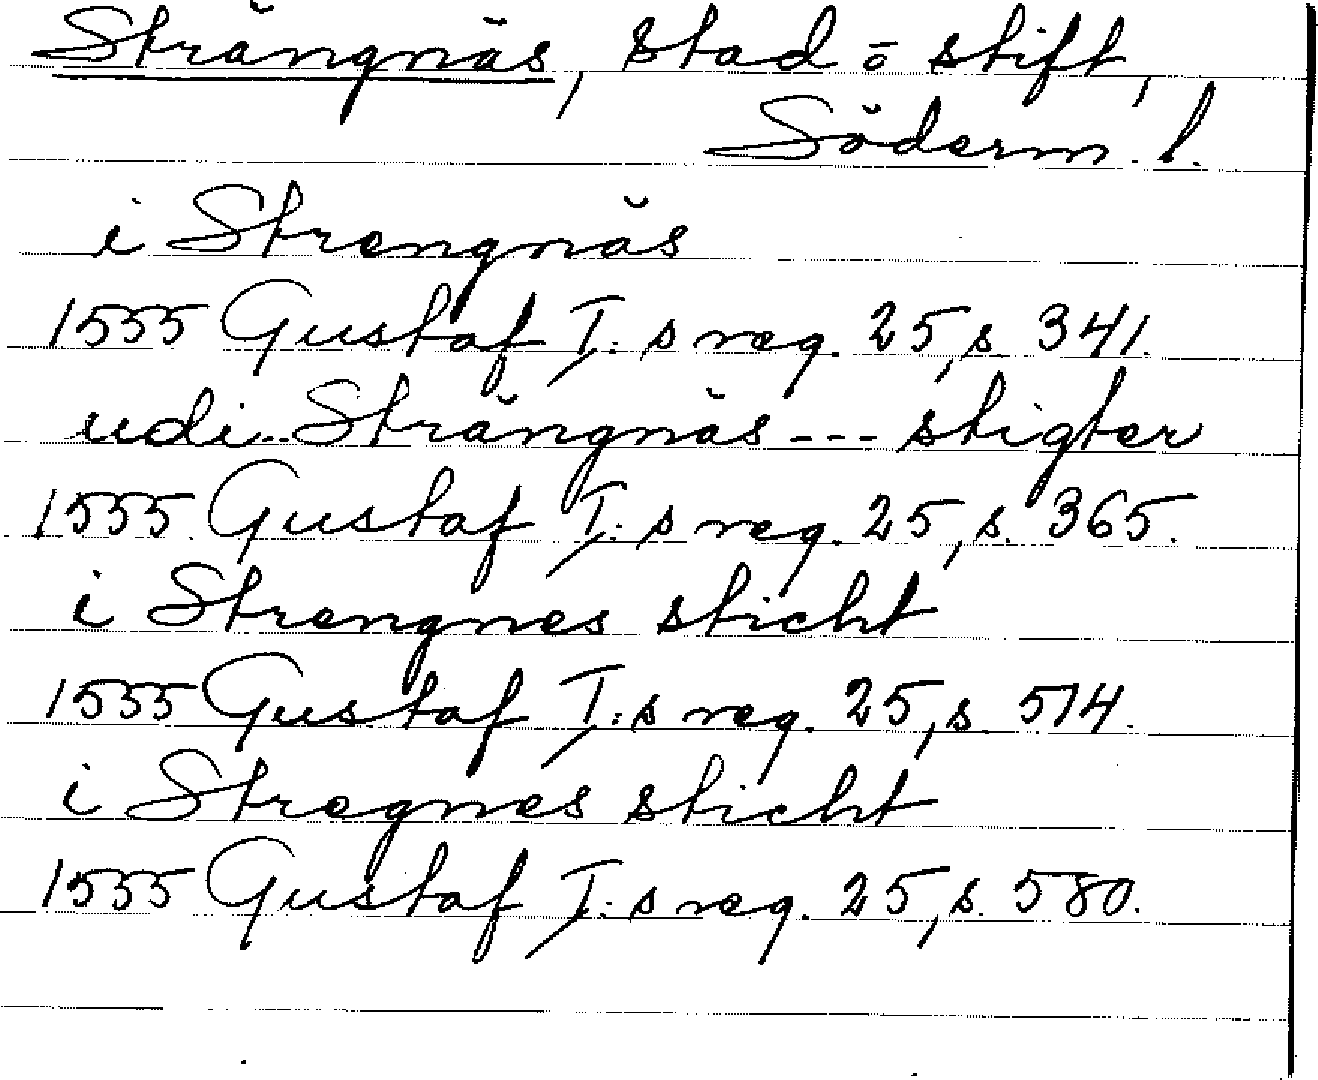 Strängnäs, stad o stift,
Söderm. l.
i Strengnäs
1555 Gustaf I:s reg. 25, s. 341.
udi.. Strängnäs --- stigter
1555 Gustaf I:s reg. 25, s. 365.
i Strengnes sticht
1555 Gustaf I:s reg. 25, s. 514.
i Stregnes sticht
1555 Gustaf I:s reg. 25, s. 580.